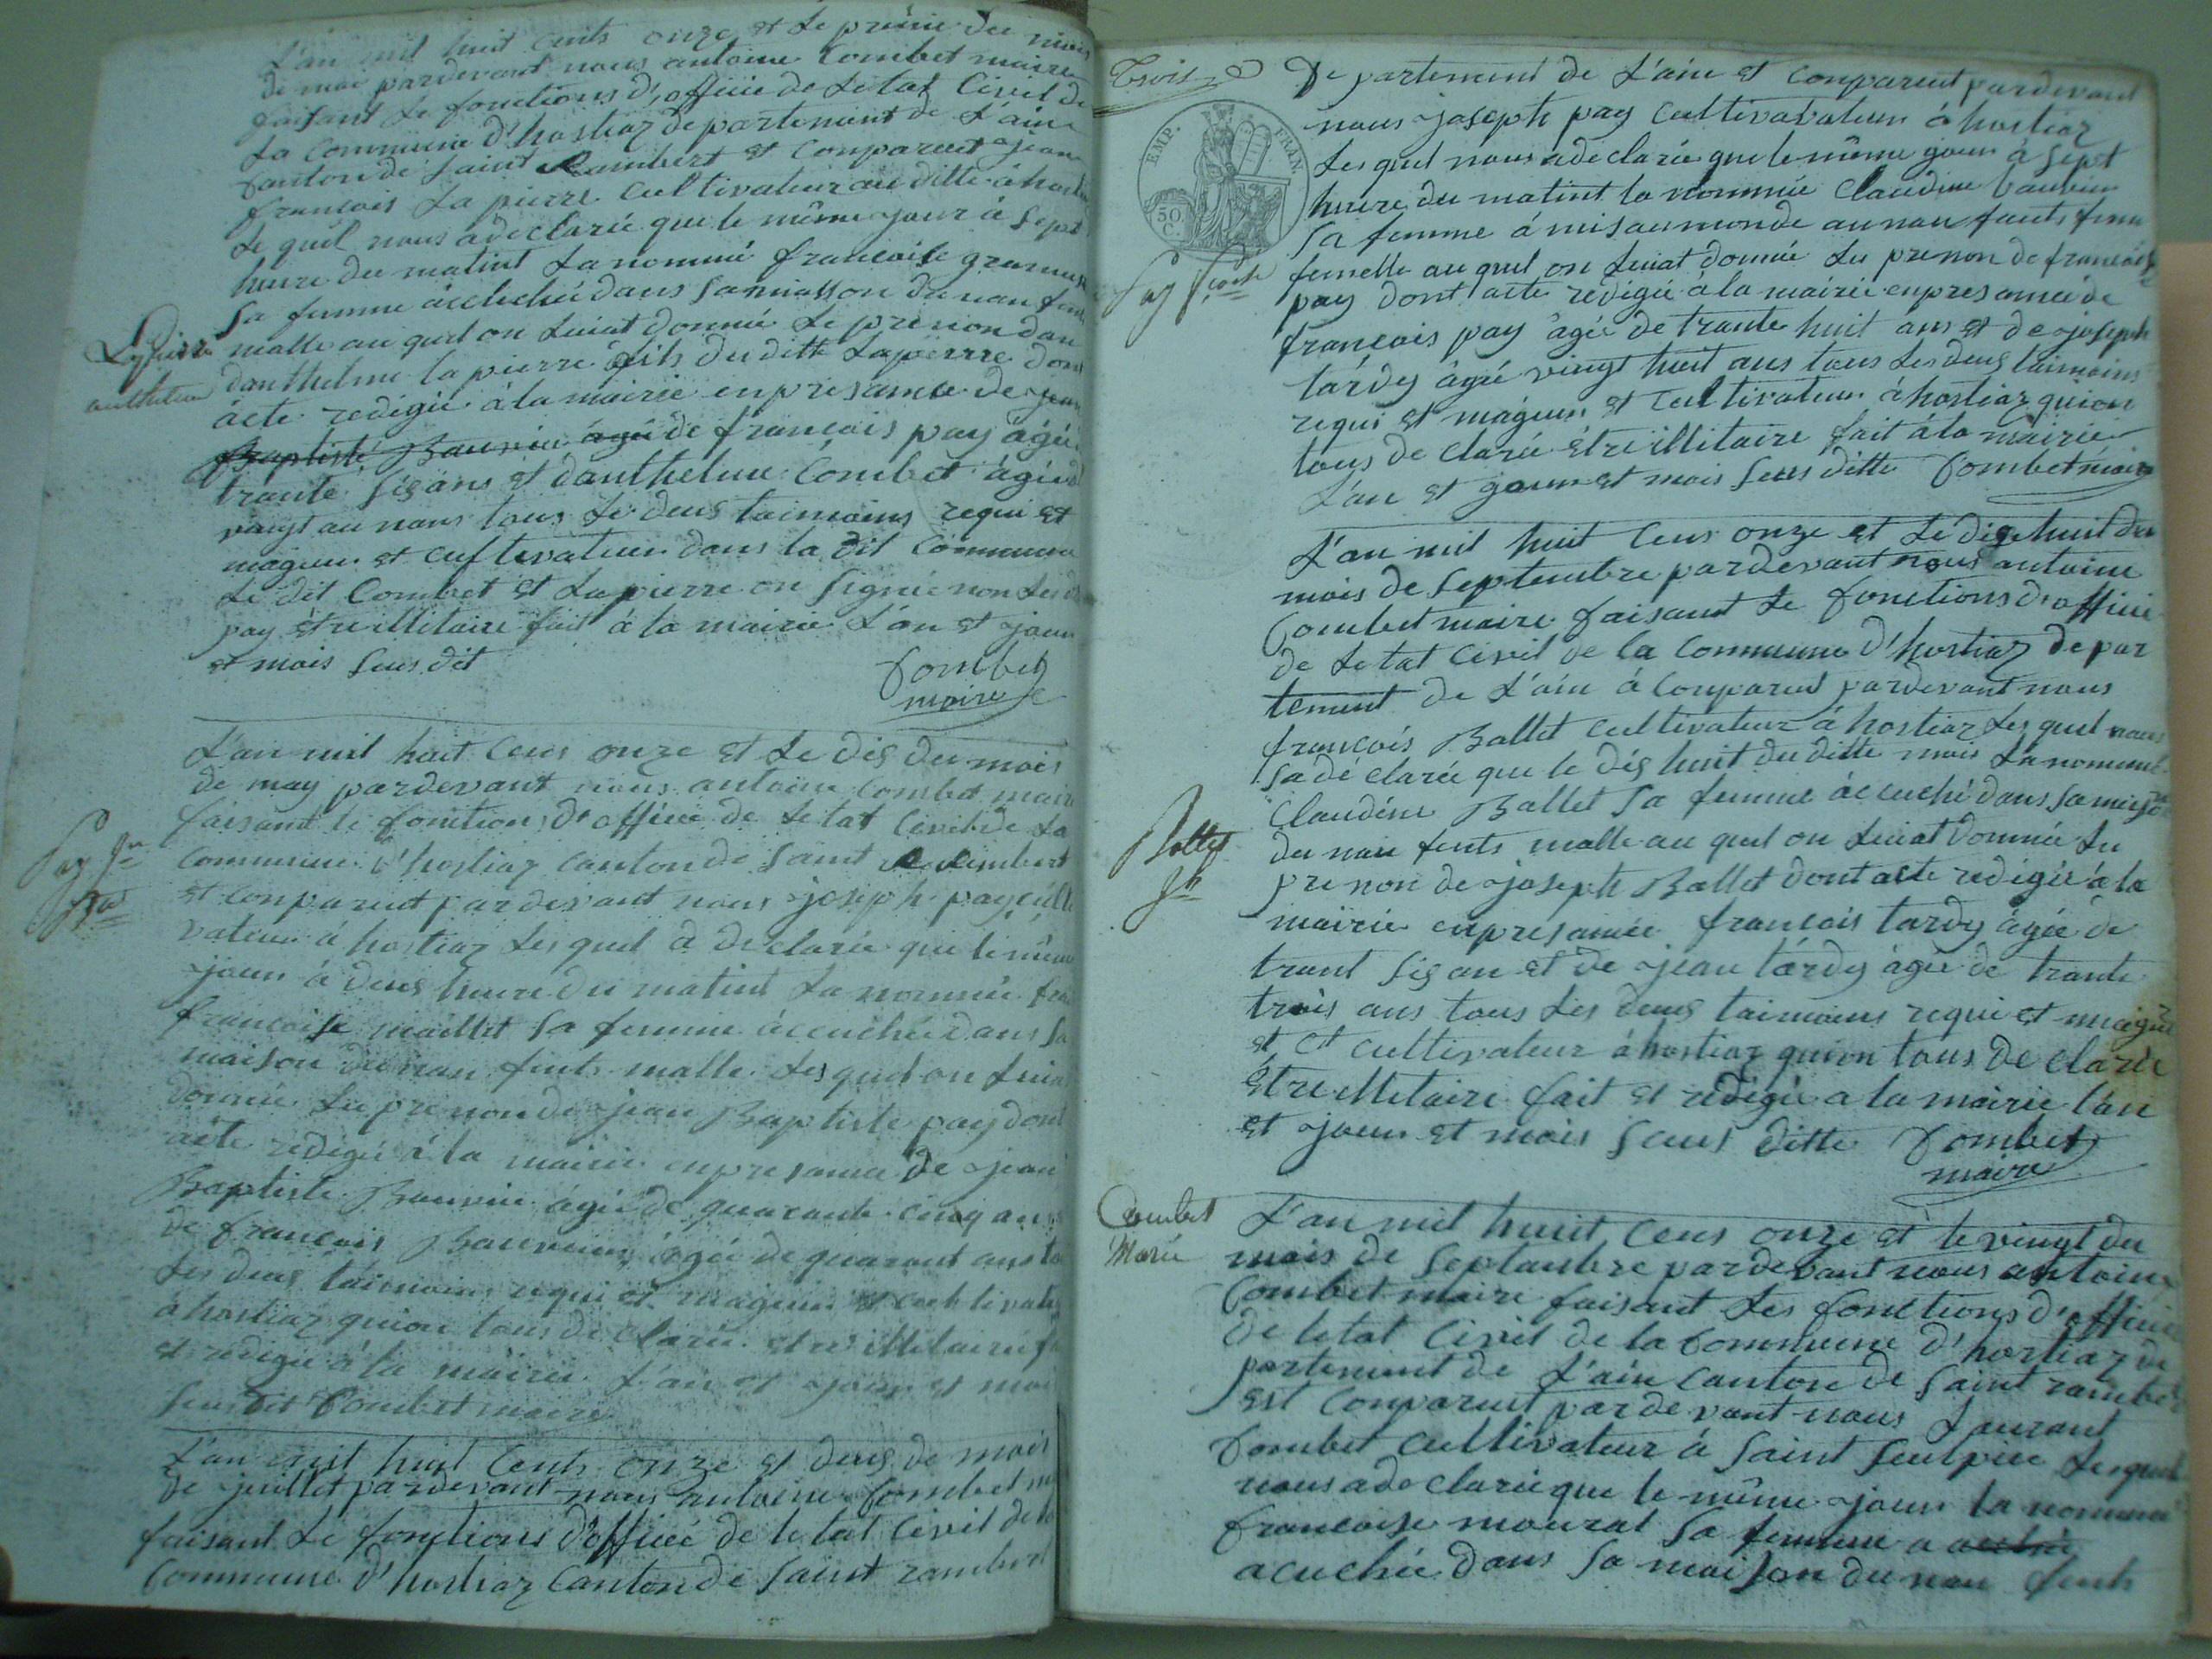 L'an mil huit cents onze et le prémie du mois
de mai pardevant nous antoine Combet maire
faisant le fonctions d'officie de letat Civil de
la Commune d'hostiaz departement de L'ain
Canton de Saint Rambert et Conparuet jean
francois La pierre Cultivateur au ditte á
Le quel nous a declarée que le même jour á Sept
heure du matint La nommé francoise
Sa femme áccuchée dans Sa maisson du nau
malle au quel on Luiat donnée Le prenon dan
danthelme la pierre fils du ditte Lapierre dont
ácte redigée á la mairie en presance de jean
Baptiste Bauvin agée de francais pay ágée
trante Sis ans et danthelme Combet ágée
vangt au nans tous Le deus taimoins requi et
mageur et Cultivateur dans la dit Commune
Le dit Combet et Lapierre on Signée non Le
pay étre illitaire fait á la mairie L'an et jour
et mois Sus dit
Combet
maire
Lapierre
anthelme
L'an mil huit Cens onze et Le dis du mois
de may pardevant nous antoine Combet maire
faisant le fonctions d'officie de Letat Civil de La
Commune d'hostiaz canton de Saint Rambert
et Conparuet pardevant nous joseph pay culti
vateur á hostiaz Les quel a declarée que le même
jour á deus heure du matint La nommée
francoise maillet Sa femme áccuchée dans Sa
maison du nau fents malle Les quel on Luia
donnée Lu prenon de jean Baptiste pay dont
acte redigée á la mairie en presance de jean
Baptiste Bauvin ágée de quarante cinq ans
de francois Bauvin ágée de quarant ans
Les deus taimoins requi et mageur et cultivateur
á hostiaz quion tous declarée etre illitaire
et redigée á la mairie L'an et jour et mois
Sus dit Combet maire
Pay Jn
Bte
L'an mil huit Cents onze et deus de mois
de juillet pardevant nous antoine Combet
faisant Le fonctions d'officié de letat Civil de la
Commune d'hostiaz Canton de Saint rambert
Trois
De partement de L'ain et Conparuet pardevant
nous joseph pay Cultivavateur á hostiaz
Les quel nous a declarée que le même jour á Sept
heure du matint la nommée Claudine Bauvin
Sa femme á mis au monde au nau fants
femelle au quel on Luiat donnée Lu prenon de francoise
pay dont acte redigée á la mairie en presance de
francois pay ágée de trante huit ans et de joseph
tardy ágée vingt huit ans tous Les deus taimoins
requi et mageur et Cultivateur á hostiaz quion
tous declarée étre illitaire fait á la mairie
L'an et jour et mois Sus ditte Combet maire
EMP. FRAN.
50 C.
Pay fcoise
L'an mil huit Cens onze et Le dis huit du
mois de Septembre pardevant nous antoine
Combet maire faisant Le fonctions d'officie
de Letat Civil de la Commune d'hostiaz depar
tement de L'ain á Conparuet pardevant nous
francois Ballet Cultivateur á hostiaz Les quel nous
a declarée que le dis huit du ditte mois La nommée
Claudine Ballet Sa femme áccuché dans Sa maison
du nau fents malle au quel on Luiat donnée Lu
prenon de joseph Ballet dont acte redigée á la
mairie en presance francois tardy ágée de
trant Sis an et de jean tárdy ágée de trante
trois ans tous Les deus taimoins requi et mageur
et et Cultivateur á hostiaz quion tous declarée
étre illitaire fait et redigée a la mairie L'an
et jour et mois Sus ditte Combet
maire
Ballet
Jh
Combet
Marie
L'an mil huit Cens onze et le vingt du
mois de Septanbre pardevant nous antoine
Combet maire faisant Les fonctions d'officie
de letat Civil de la Commune d'hostiaz de
partement de L'ain Canton de Saint rambert
est Conparuet pardevant nous Laurant
Combet Cultivateur á Saint Sulpice Lequel
nous a declarée que le même jour la nommé
francoise mourat Sa femme a
acuchée dans Sa maison du nau fents